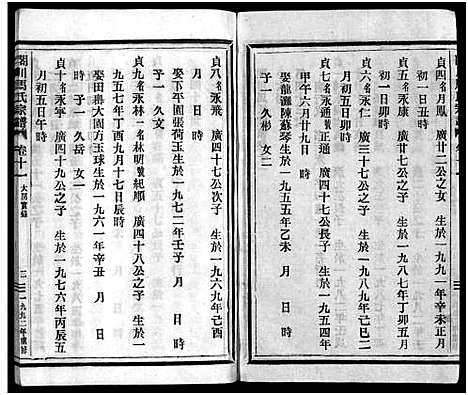 貞四名月鳳　廣廿二公之女　生於一九九一年辛未正月
初四日
貞五名　生於一九八七年丁卯五月
貞六名永仁　廣三十七公之子　生於一九八九年己巳二
月十九日
貞七名永通號正通　廣四十七公長子　生於一九五四年
甲午六月廿九日　時
娶龍灘陳蘇琴生於一九五五年乙未　月　日　時
子一　久彬　女二
貞八名永飛　廣四十七公次子　生於一九六九年己酉
月　日　時
娶下午園張荷玉生於一九七二年壬子　月　日　時
貞九名永林又名林明號紀順　廣四十八公之子　生於一
九五七年丁酉九月十七日辰時
娶田舋大園方玉球生於一九六一年辛丑　月　日　時
子一　久岳　女二
貞十名永寧　廣四十九公之子　生於一九七六年丙辰五
月初五日午時
閣川馮氏宗譜　卷十一　大房實錄　三　一九九二年重修